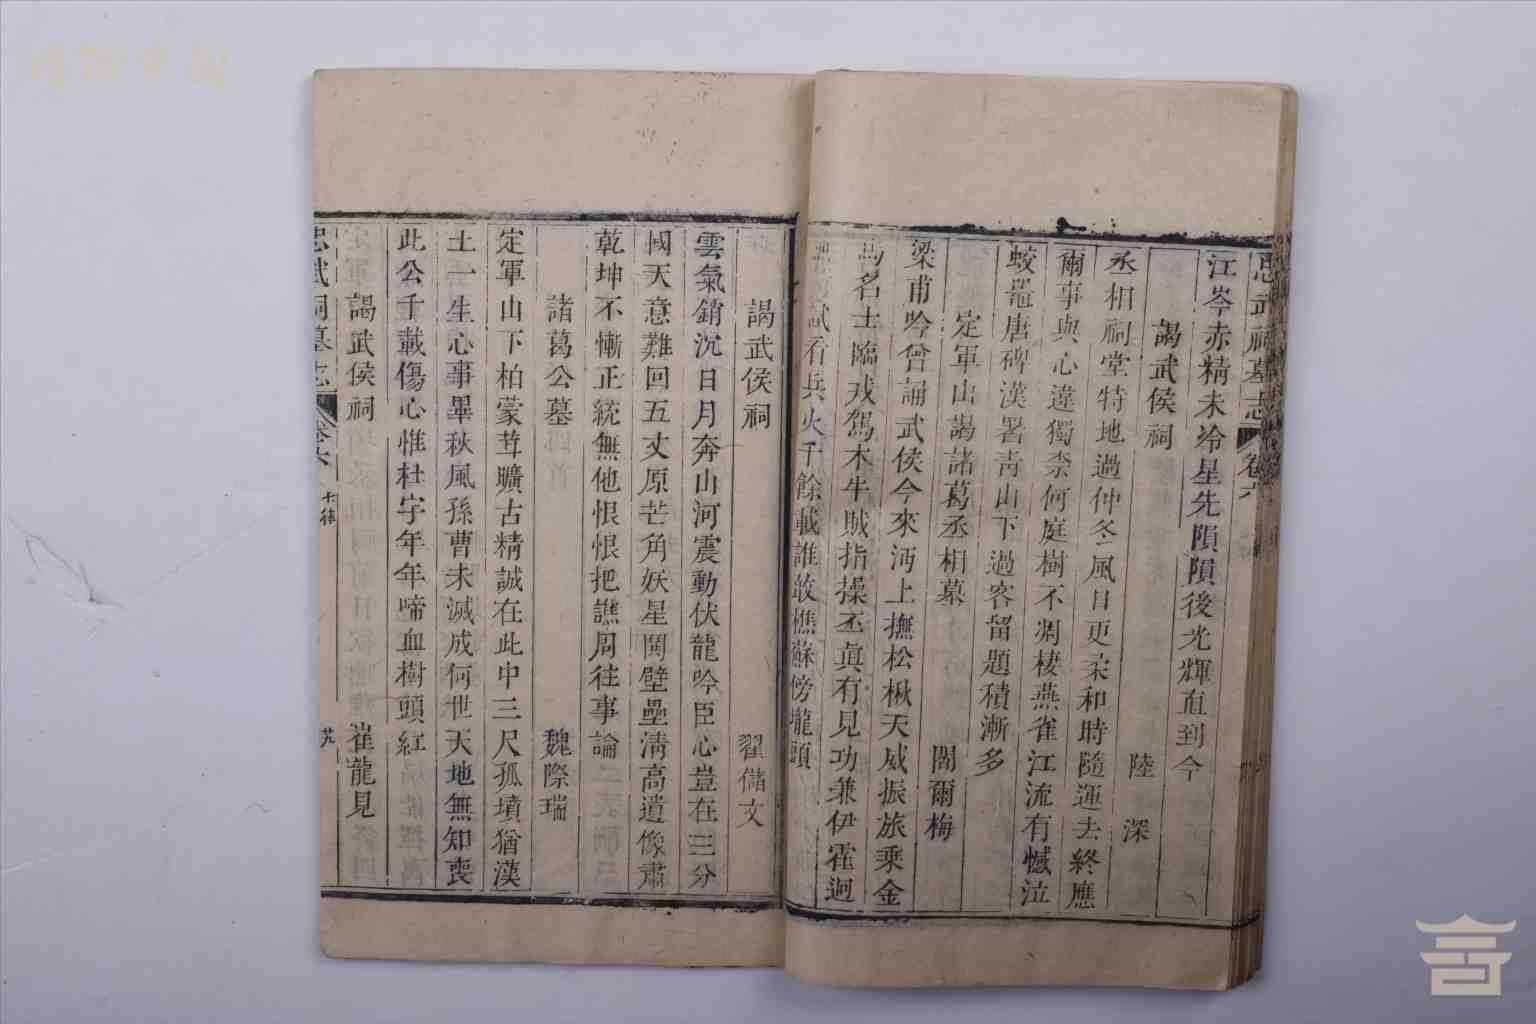 忠武祠墓志 卷六
江岑赤精未冷星先隕隕後光輝直到今
謁武侯祠 陸深
丞相祠堂特地過仲冬風日更柔和時隨運去終應
爾事與心違獨柰何庭樹不凋棲燕雀江流有憾泣
蛟鼉唐碑漢署靑山下過客留題積漸多
定軍山謁諸葛丞相墓 閻爾梅
梁甫吟曾誦武侯今來沔上撫松楸天威振旅乘金
馬名士臨戎駕木牛賊指操丕眞有見功兼伊霍迥
試看兵火千餘載誰敢樵蘇傍壠頭
謁武侯祠 翟儲文
雲氣銷沉日月奔山河震動伏龍吟臣心豈在三分
國天意難回五丈原芒角妖星閧壁壘淸高遺像肅
乾坤不慚正統無他恨恨把譙周往事論
諸葛公墓 魏際瑞
定軍山下柏蒙茸曠古精誠在此中三尺孤墳猶漢
土一生心事畢秋風孫曹未滅成何世天地無知喪
此公千載傷心惟杜宇年年啼血樹頭紅
謁武侯祠 崔龍見
忠武祠墓志 卷六 七律